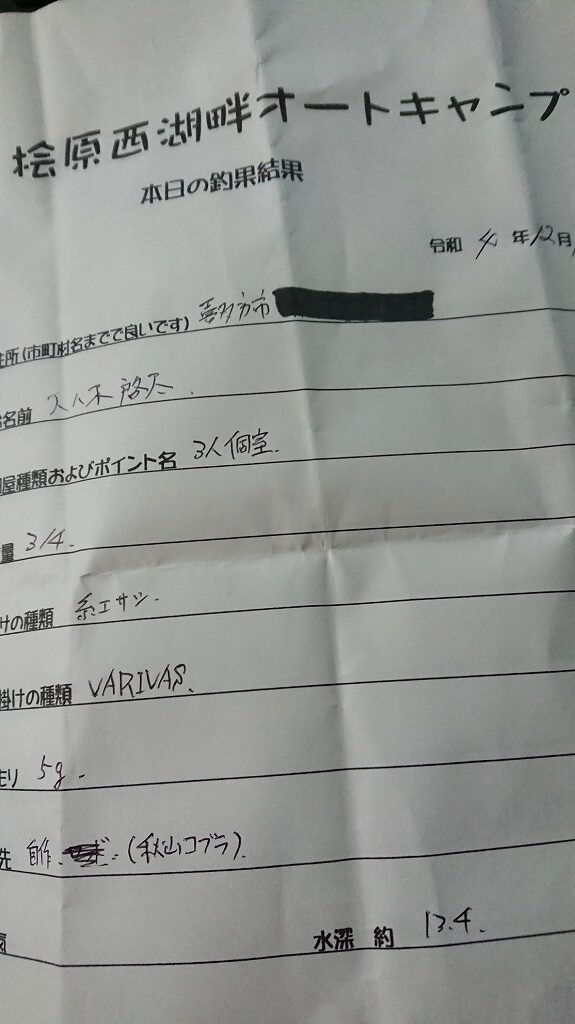 桧原西湖畔オートキャンプ
本日の釣果結果
令和 4 年 12月
住所(市町村名までで良いです) 喜多方市
お名前 久八木 啓太
部屋種類およびポイント名 3人個室.
量 314.
けの種類 紅エサシ.
掛けの種類 VARIVAS.
モリ 5g.
先 自作 (秋山コブラ).
水深 約 13.4.